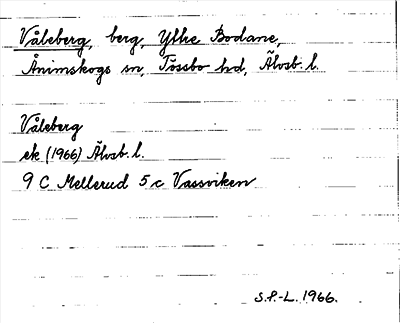 Våleberg, berg, Yttre Bodane,
Ånimskogs sn, Tössbo hd, Älvsb. l.
Våleberg
ek (1966) Älvsb. l.
9 C Mellerud 5 c Vassviken
S.P.-L. 1966.